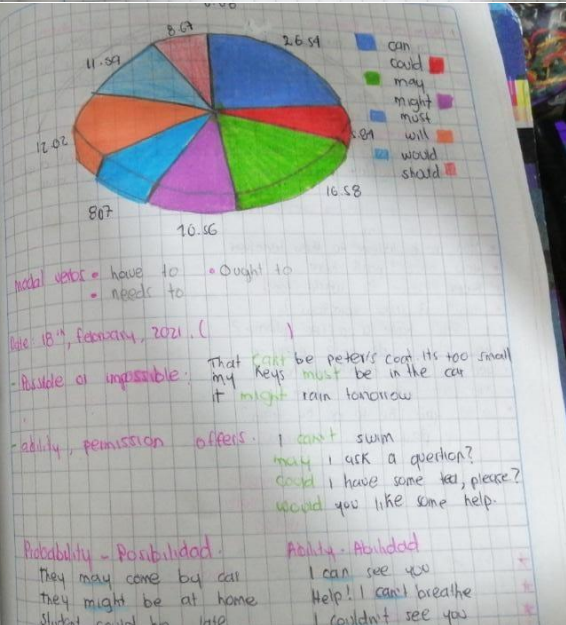 8.67
26.59
11.59
12.02
807
10.56
16.58
can
could
may
might
must
will
would
should
modal verbs • have to • Ought to
• needs to
Date: 18th, february, 2021. ( )
- Possible or impossible: That can't be peter's coat. Its too small
my keys must be in the car
it might rain tomorrow
- ability, permission offers. I can't swim
may I ask a question?
Could I have some tea, please?
would you like some help.
Probability - Posibilidad.
They may come by car
they might be at home
Ability - Abilidad
I can see you
Help! I can't breathe
I couldn't see you